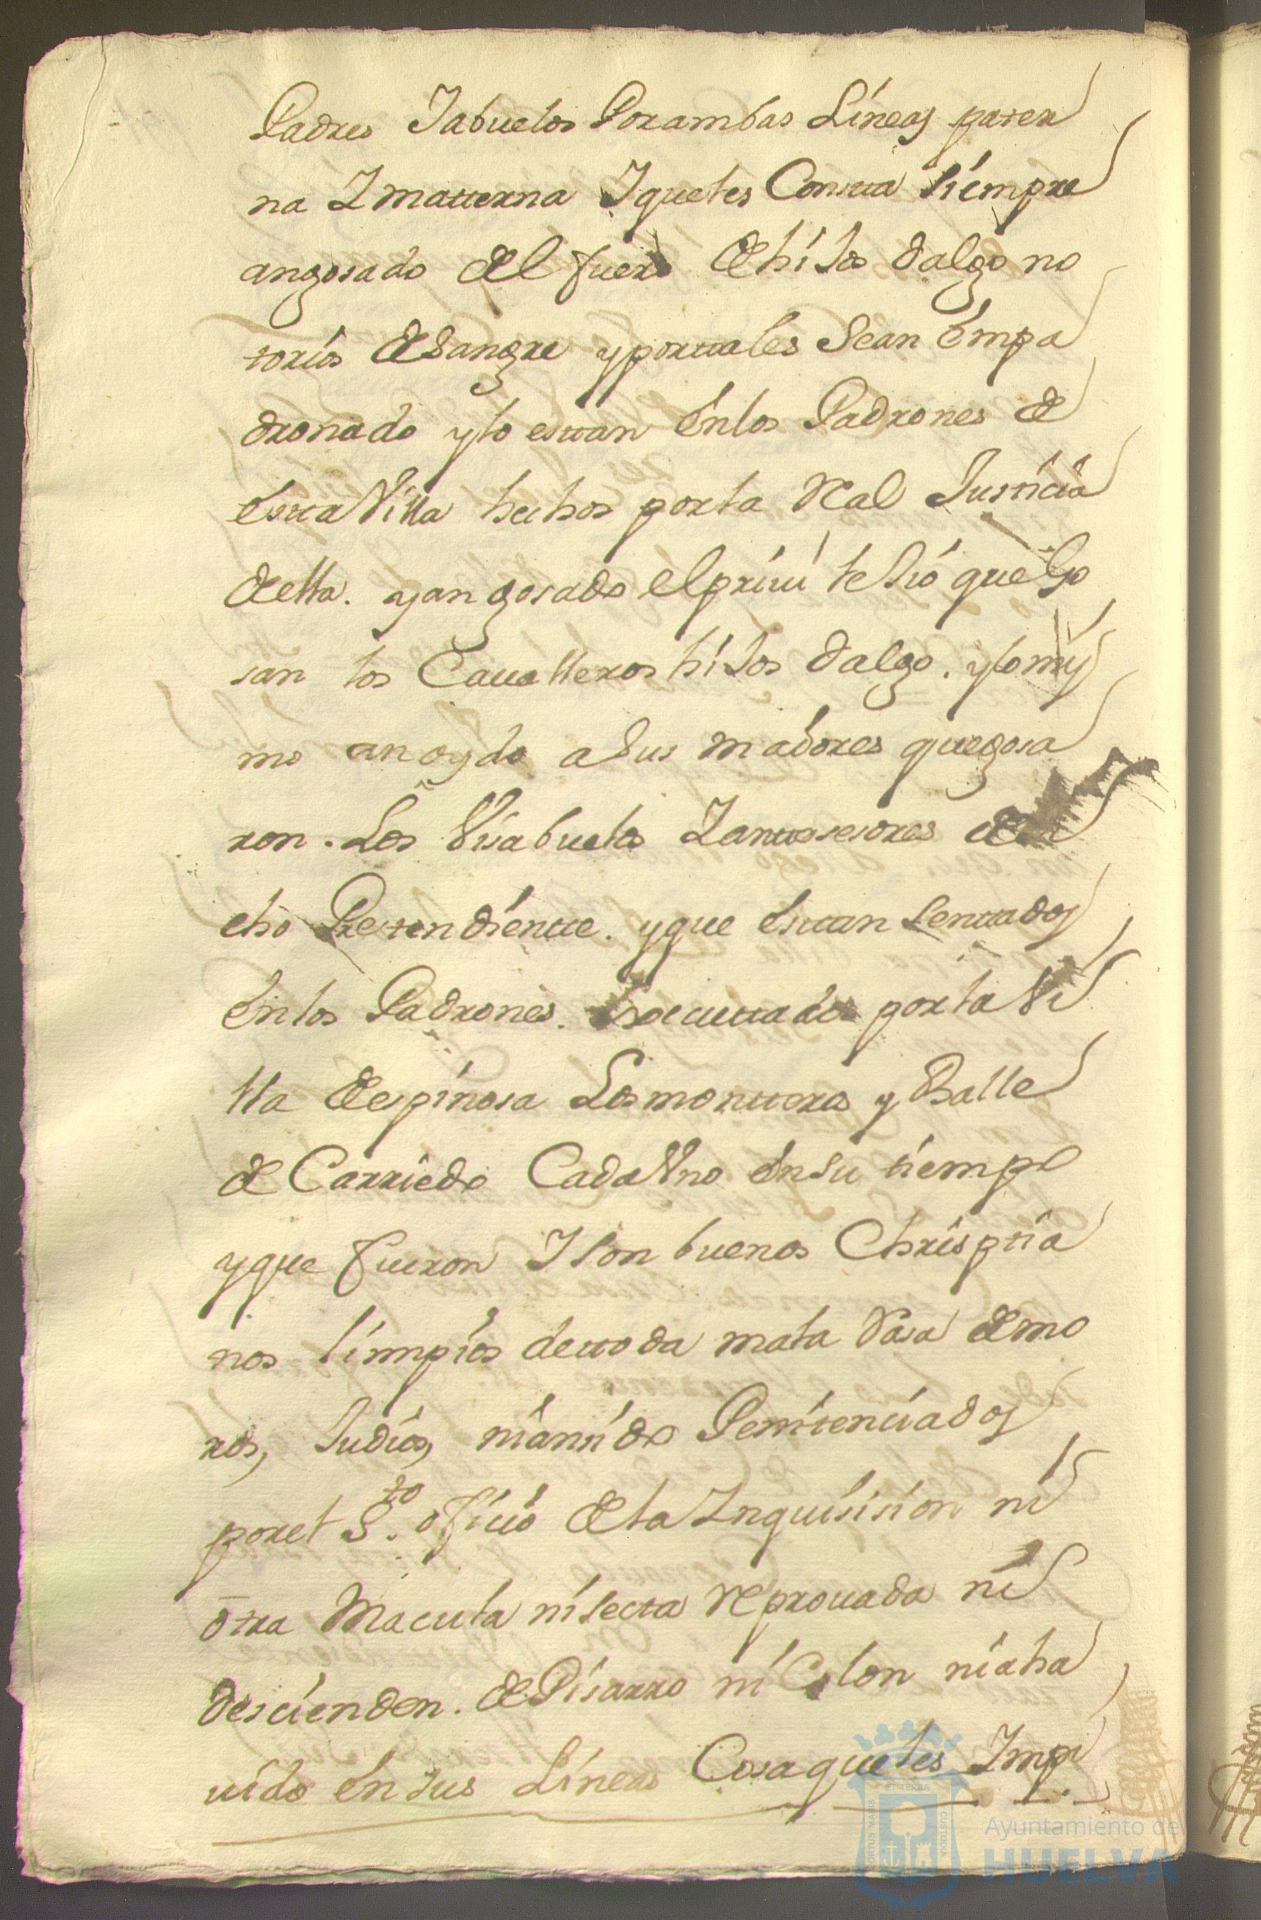 Padres Iabuelos Porambas Líneas pater
na Ímatterna Iqueles Constta siempre
angosado del fuero de hijos dalgo no
torios de sangre y porttales sean émpa
dronado y lo esttan énlos Padrones de
éstta Villa hechos porla Real Justicia
della. yangosado el privilejio que Go
san los Cavalleros hijos dalgo. y lo mis
mo an oydo a sus maiores que gosa
ron. Los Visabuelos Ianttesesores de
cho Pretendientte. y que esttan senttados
énlos Padrones. executtados porla Vi
lla de espinosa Losmontteros y Balle
de Carriedo Cada Vno én su tiempo
y que fueron Ison buenos Chrisptia
nos límpios de ttoda mala Rasa de mo
ros, Judios, nian sido Penitenciados
porel S.to oficio de la Inquisision ni
otra Macula ni secta reprouada ni
descienden. de Pisarro ni Colon ni aha
uido én sus Líneas Cosaqueles Impi
Ayuntamiento de
HUELVA